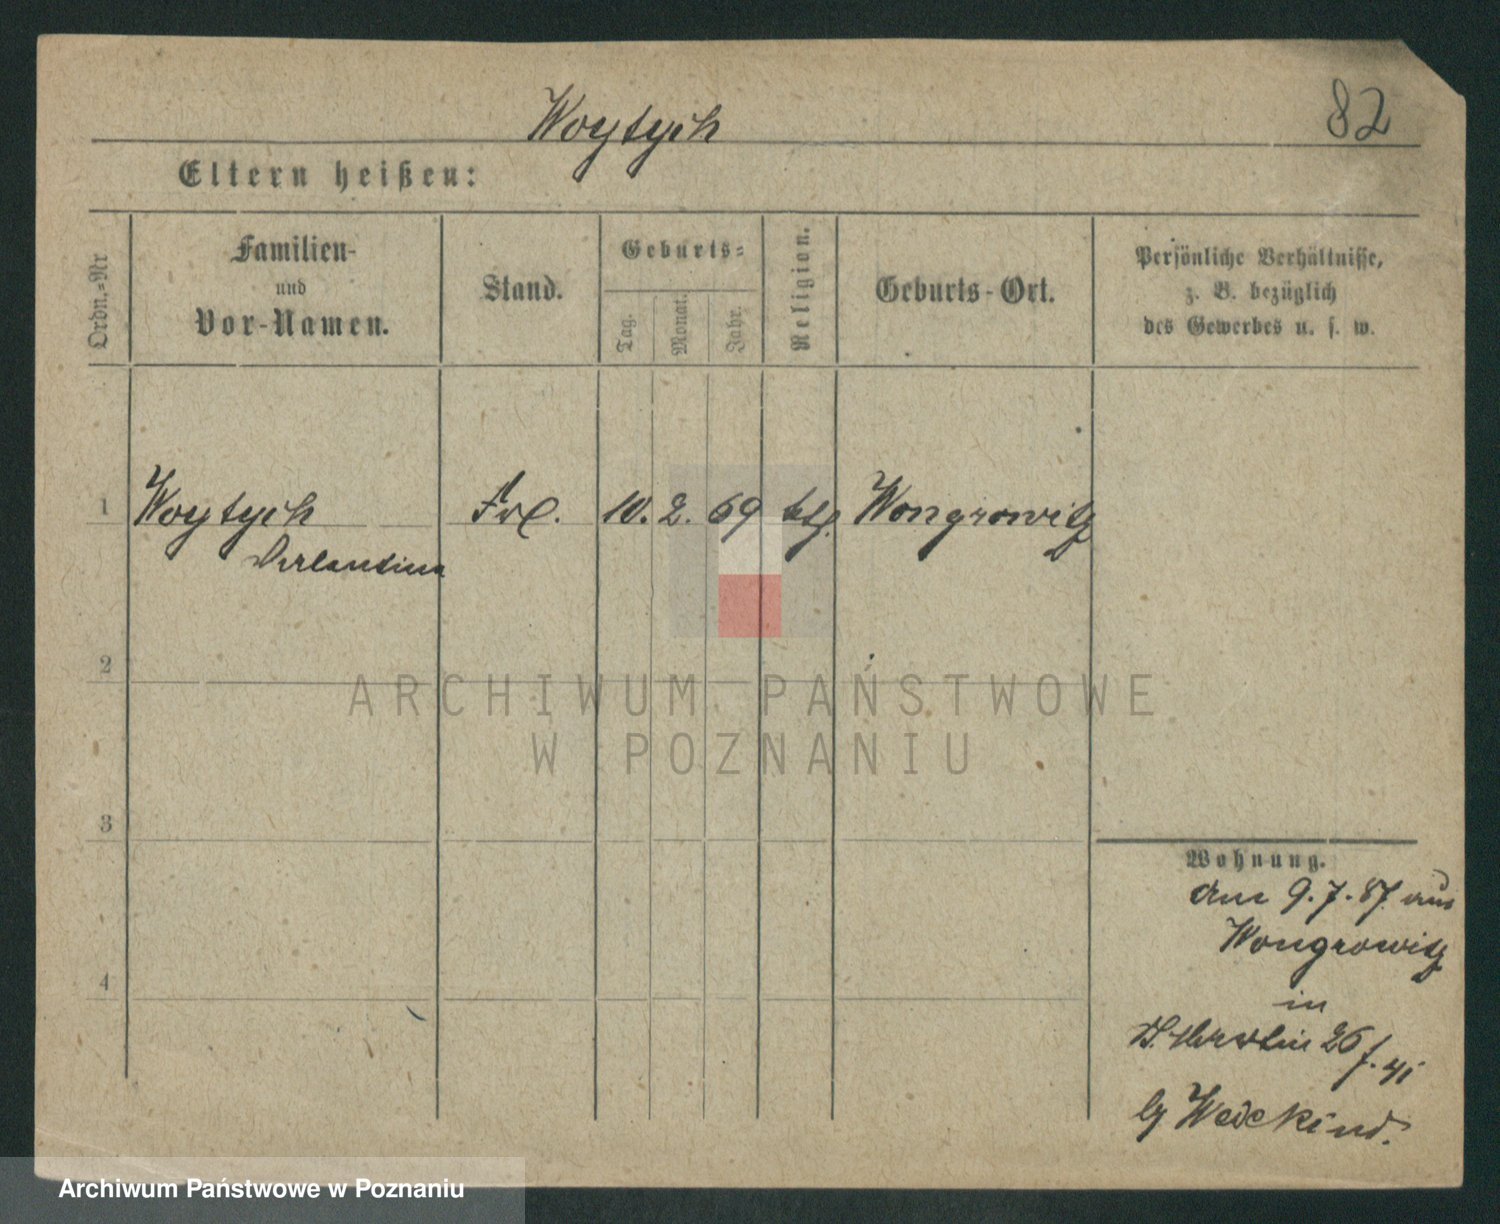 Woytych
82
Eltern heißen:
Ordn.=Nr
Familien-
und
Vor-Namen.
Stand.
Geburts=
Tag.
Monat.
Jahr.
Religion.
Geburts-Ort.
Persönliche Verhältnisse,
z. B. bezüglich
des Gewerbes u. s. w.
1 Woytych Frl. 10. 2. 69 ktl. Wongrowitz
2
ARCHIWUM PAŃSTWOWE
W POZNANIU
3
Wohnung.
am 9.7.87 aus
Wongrowitz
4
in
St. Martin 26
Archiwum Państwowe w Poznaniu